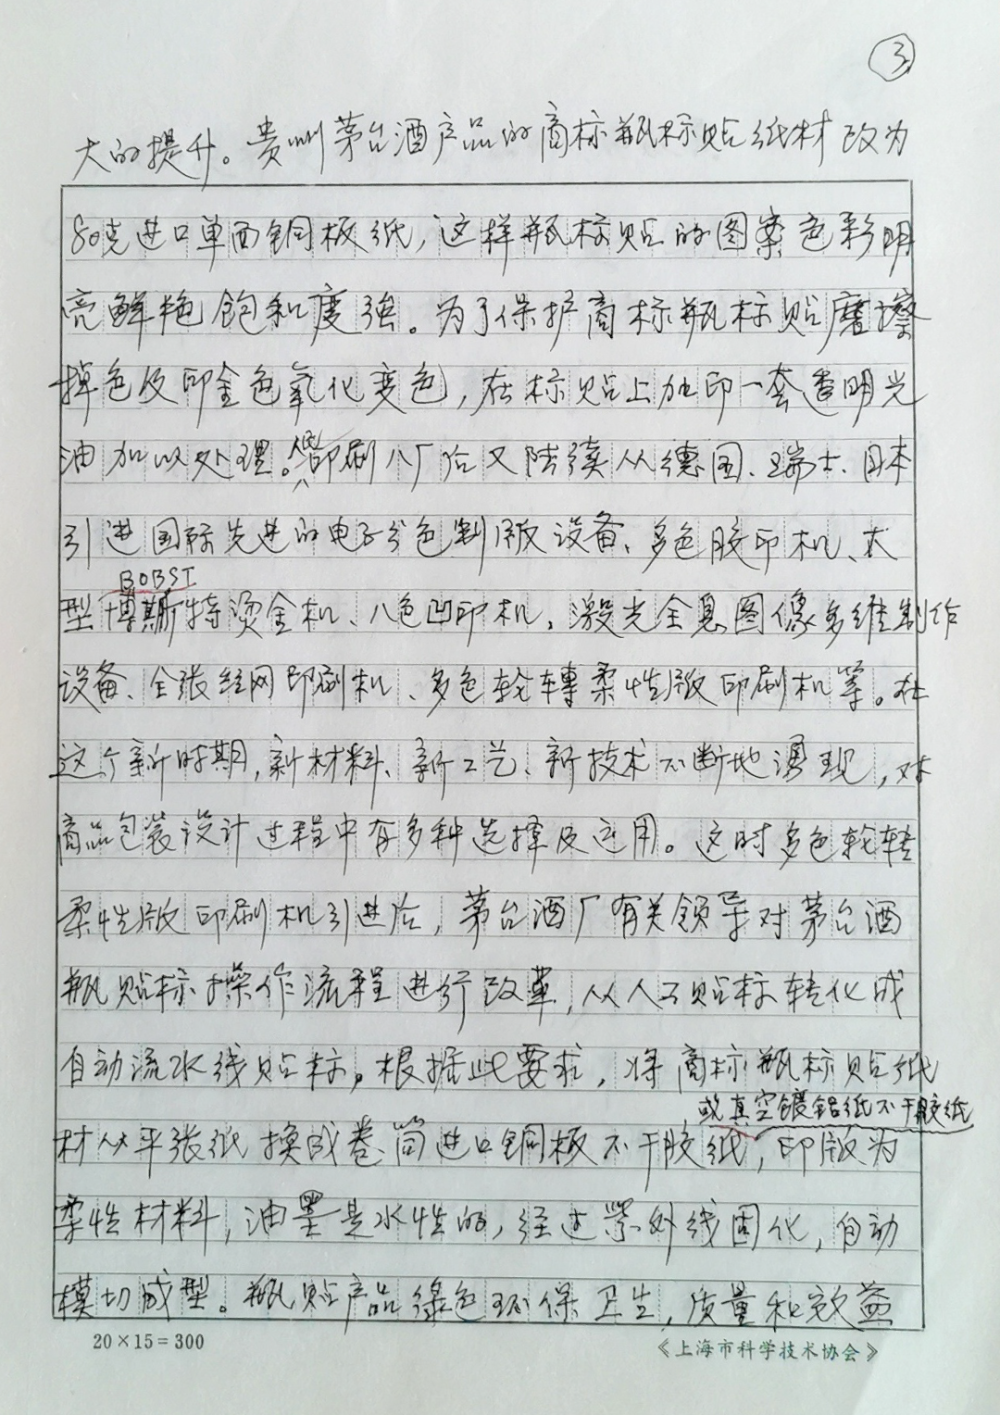 ③
大的提升。贵州茅台酒产品的商标瓶标贴纸材改为
80克进口单面铜板纸，这样瓶标贴的图案色彩明
亮鲜艳饱和度强。为了保护商标瓶标贴磨擦
掉色及印金色氧化变色，在标贴上加印一套透明光
油加以处理。印刷八厂后又陆续从德国、瑞士、日本
引进国际先进的电子分色制版设备、多色胶印机、大
BOBST
型博斯特烫金机、八色凹印机，激光全息图像多维制作
设备、全张丝网印刷机、多色轮轉柔性版印刷机等。在
这个新时期，新材料、新工艺、新技术不断地涌现，对
商品包装设计过程中有多种选择及运用。这时多色轮转
柔性版印刷机引进后，茅台酒厂有关领导对茅台酒
瓶贴标操作流程进行改革，从人工贴标转化成
自动流水线贴标。根据此要求，将商标瓶标贴纸
或真空镀铝纸不干胶纸
材从平张纸换成卷筒进口铜板不干胶纸，印版为
柔性材料，油墨是水性的，经过紫外线固化，自动
模切成型。瓶贴产品绿色环保卫生，质量和效益
20×15=300
《上海市科学技术协会》